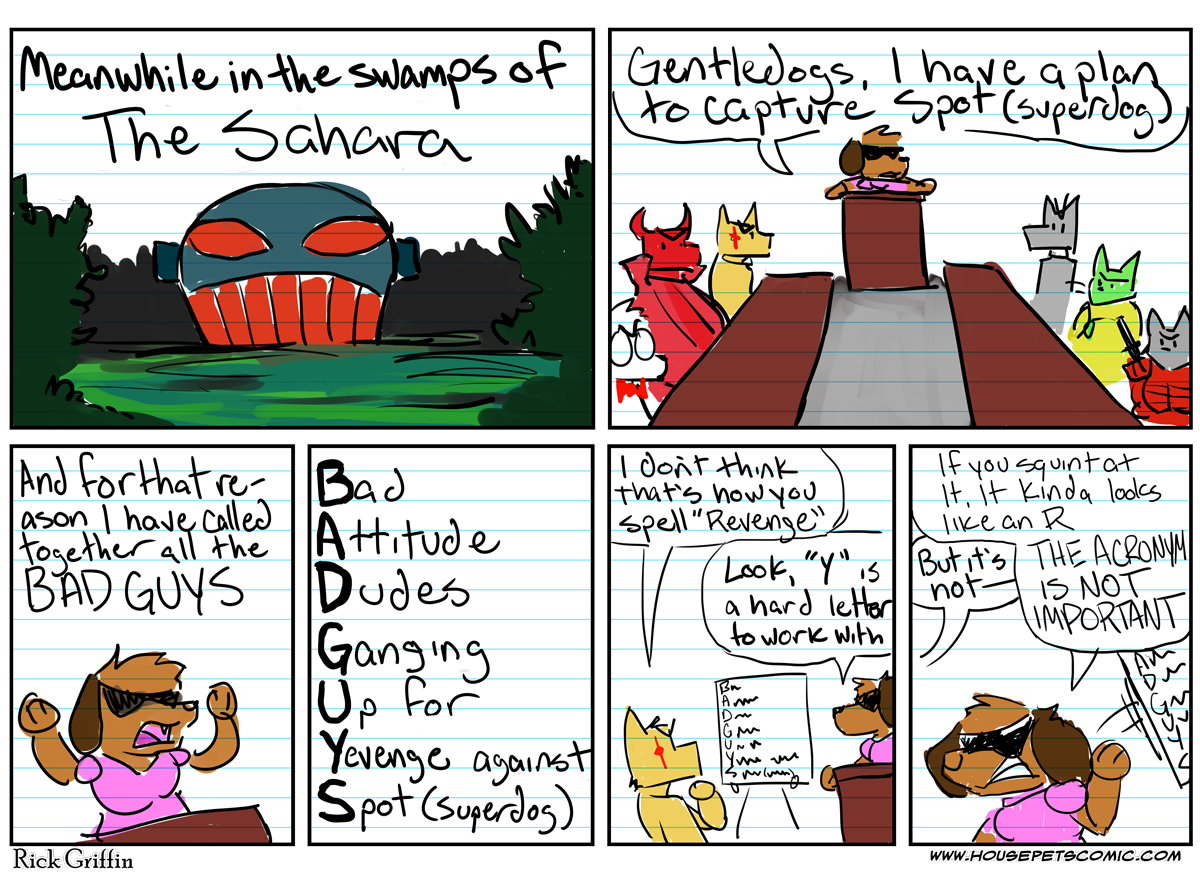 Meanwhile in the swamps of
The Sahara
Gentledogs, I have a plan
to capture Spot (superdog)
And for that re-
ason I have called
together all the
BAD GUYS
Bad
Attitude
Dudes
Ganging
Up for
Yevenge against
Spot (superdog)
I don't think
that's how you
spell "Revenge"
Look, "Y" is
a hard letter
to work with
If you squint at
it, it kinda looks
like an R
But it's
not—
THE ACRONYM
IS NOT
IMPORTANT
Rick Griffin
WWW.HOUSEPETSCOMIC.COM